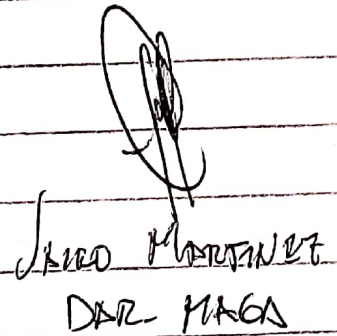 JAIRO MARTINEZ
DAR- MAGA